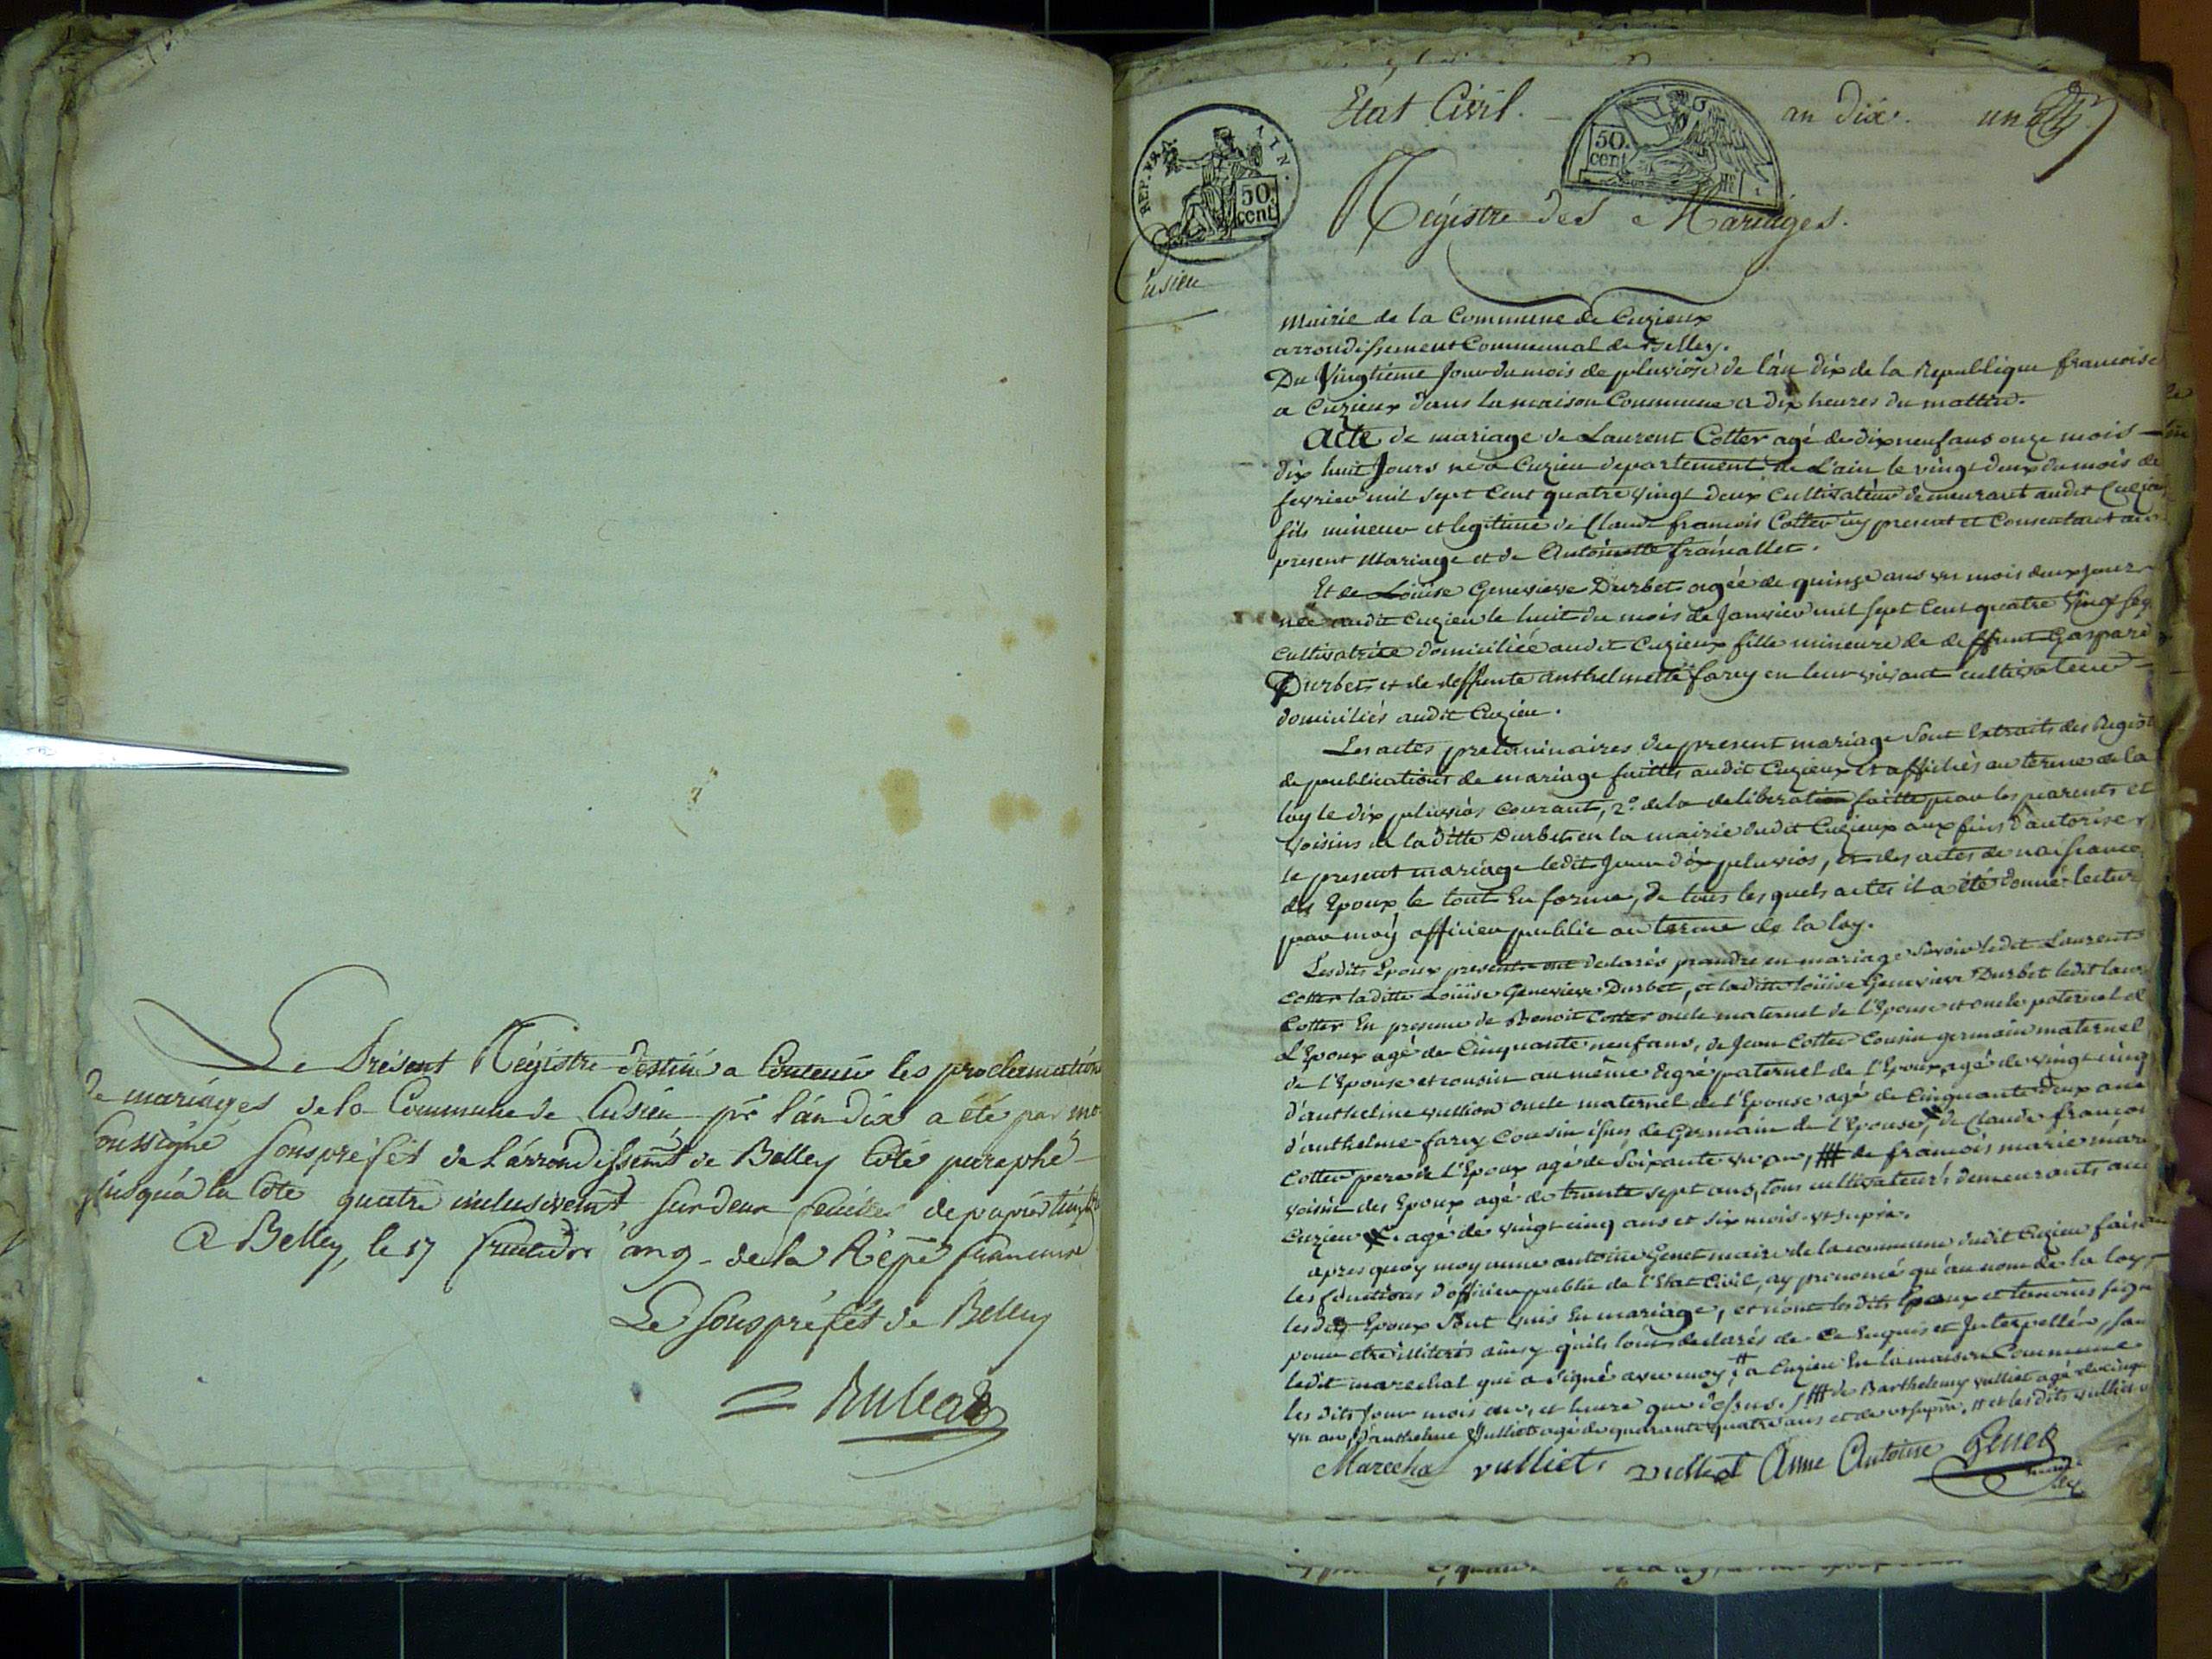 Le Présent Régistre destiné a Contenir les proclamations
de mariages de la Commune de Cusieu pr l'an dix a été par moi
soussigné Souspréfét de l'arrondissemt de Belley Coté paraphé
jusqu'a la Cote quatre inclusivemt sur deux feuilles de papier timbré
A Belley, le 17 fructidor an 9 de la Rép. francaise
Le souspréfét de Belley
Etat Civil. an dix. un
REP. FRA. 50 cent
50. cent
Régistre des Mariages.
Cusieu
Mairie de la Commune de Cuzieux
arrondissement Communal de Belley.
Du Vingtieme Jour du mois de pluviose de l'an dix de la Republique francoise
a Cuzieux dans la maison Commune a dix heures du mattin.
Acte de mariage de Laurent Cotter agé de dix neuf ans onze mois
dix huit Jours né a Cuzieu departement de L'ain le vingt deux du mois de
fevrier mil sept Cent quatre vingt deux Cultivateur demeurant audit Cuzieu
fils mineur et legitime de Claude francois Cotter icy present et Consentant au
present Mariage et de Antoinette
Et de Loüise Genevieve Durbet agée de quinze ans un mois deux jours
née audit Cuzieu le huit du mois de Janvier mil sept Cent quatre vingt sept
Cultivatrice domiciliée audit Cuzieux fille mineure de deffunt Gaspard
Durbet et de deffunte anthelmette farcy en leur vivant cultivateur
domiciliés audit Cuzieu.
Les actes preliminaires du present mariage Sont Extraits des Registres
de publications de mariage faittes audit Cuzieux et affichés au terme de la
loy le dix pluvios courant, 2° de la deliberation faitte par les parents et
voisins de la ditte Durbet en la mairie dudit Cuzieux aux fins d'autoriser
le present mariage ledit Jour dix pluvios, et des actes de naissance
des Epoux, le tout En forme, de tous les quels actes il a été donné lecture
par moy officier public au terme de la loy.
Lesdits Epoux presents ont declarés prandre en mariage Savoir ledit Laurent
Cotter la ditte Loüise Genevieve Durbet, et la ditte loüise Genevieve Durbet ledit
Cotter En presence de Benoit Cotter oncle maternel de l'Epouse et oncle paternel de
L'Epoux agé de Cinquante neuf ans, de Jean Cotter Cousin germain maternel
de l'Epouse et cousin au même degré paternel de l'Epoux agé de vingt cinq
d'anthelme oncle maternel de l'Epouse agé de Cinquante deux ans
d'anthelme farcy Cousin issus de Germain de l'Epouse, de Claude francois
Cotter pere de l'Epoux agé de Soixante un an, de francois marie
voisin des Epoux agé de trante sept ans, tous cultivateurs demeurants au
Cuzieu agé de vingt cinq ans et six mois
apres quoy moy anne antoine Genet maire de la commune dudit Cuzieu faisant
les fonctions d'officier public de l'Etat Civil, ay prononcé qu'au nom de la loy
lesdits Epoux Sont unis En mariage, et n'ont lesdits Epoux et temoins signé
pour etre illiterés ainsy qu'ils l'ont declarés de Ce Enquis et Interpellés, sau
ledit marechal qui a signé avec moy, a Cuzieu En la maison Commune
les dits Jour mois an, et heure que dessus. de Barthelemy vulliet agé de cinqu
un an, d'anthelme Vulliet agé de quarante quatre ans et les dits vulliet
Marechal vulliet vulliet Anne Antoine Genet
maire